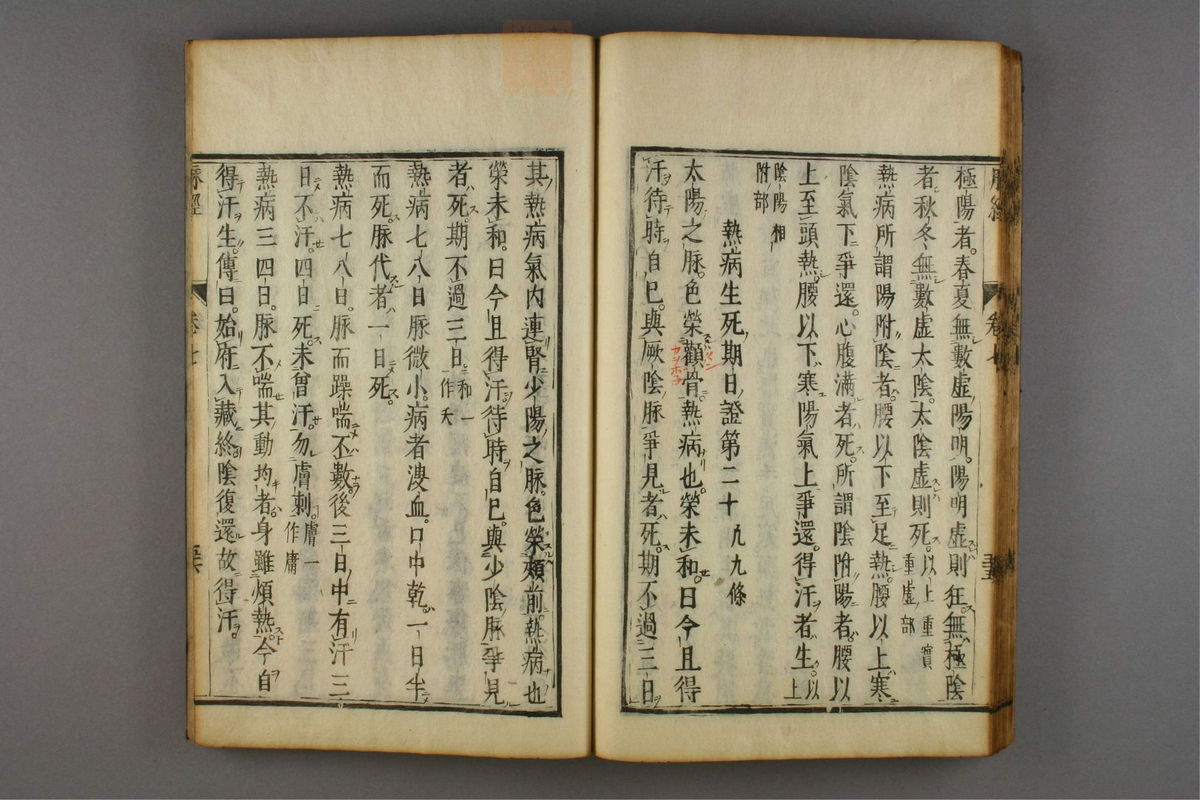 極陽者。春夏無數虛陽明。陽明虛則狂。無極陰
者。秋冬無數虛太陰。太陰虛則死。以上重實重虛部
熱病所謂陽附陰者。腰以下至足熱。腰以上寒
陰氣下爭還。心腹滿者死。所謂陰附陽者。腰以
上至頭熱。腰以下寒陽氣上爭還。得汗者生。以上
陰陽相附部
熱病生死期日證第二十九九條
太陽之脉。色榮顴骨。熱病也。榮未和。日今且得
汗待時自已。與厥陰脉爭見者死。期不過三日
其熱病氣内連腎少陽之脉。色榮頰前。熱病也
榮未和。日今且得汗。待時自已。與少陰脉爭見
者死。期不過三日和一作夭
熱病七八日脉微小。病者溲血。口中乾。一日半
而死。脉代者。一日死。
熱病七八日。脉而躁喘不數。後三日中有汗三
日不汗。四日死。未曾汗。勿膚刺。膚一作庸
熱病三四日。脉不喘其動均者。身雖煩熱。今自
得汗生。傳曰。始府入藏終陰復還故得汗。